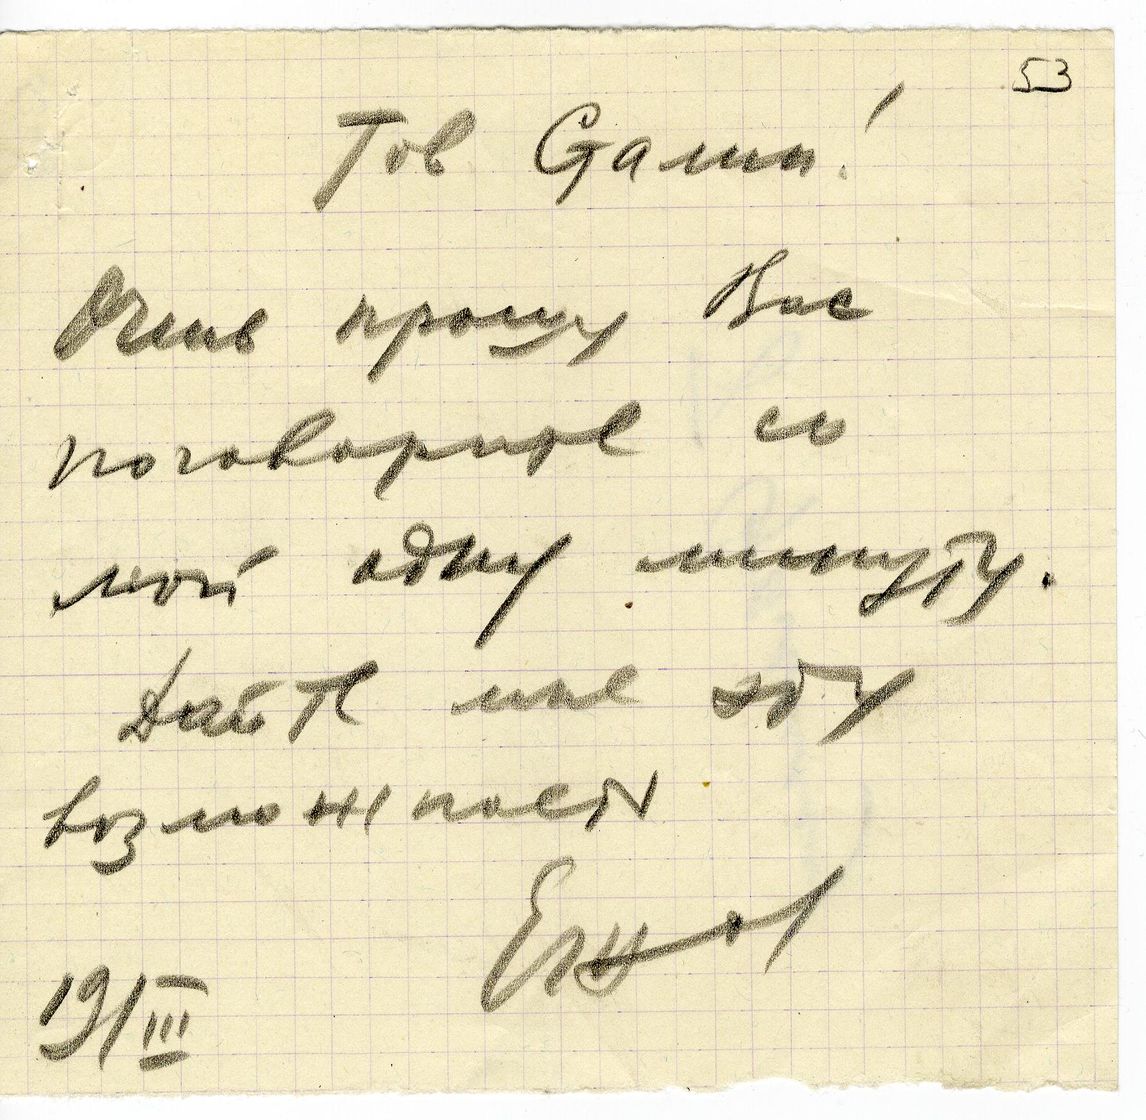 53
Тов Сталин!
Очень прошу Вас
поговорите со
мной одну минуту.
Дайте мне эту
возможность
Ежов
19/III